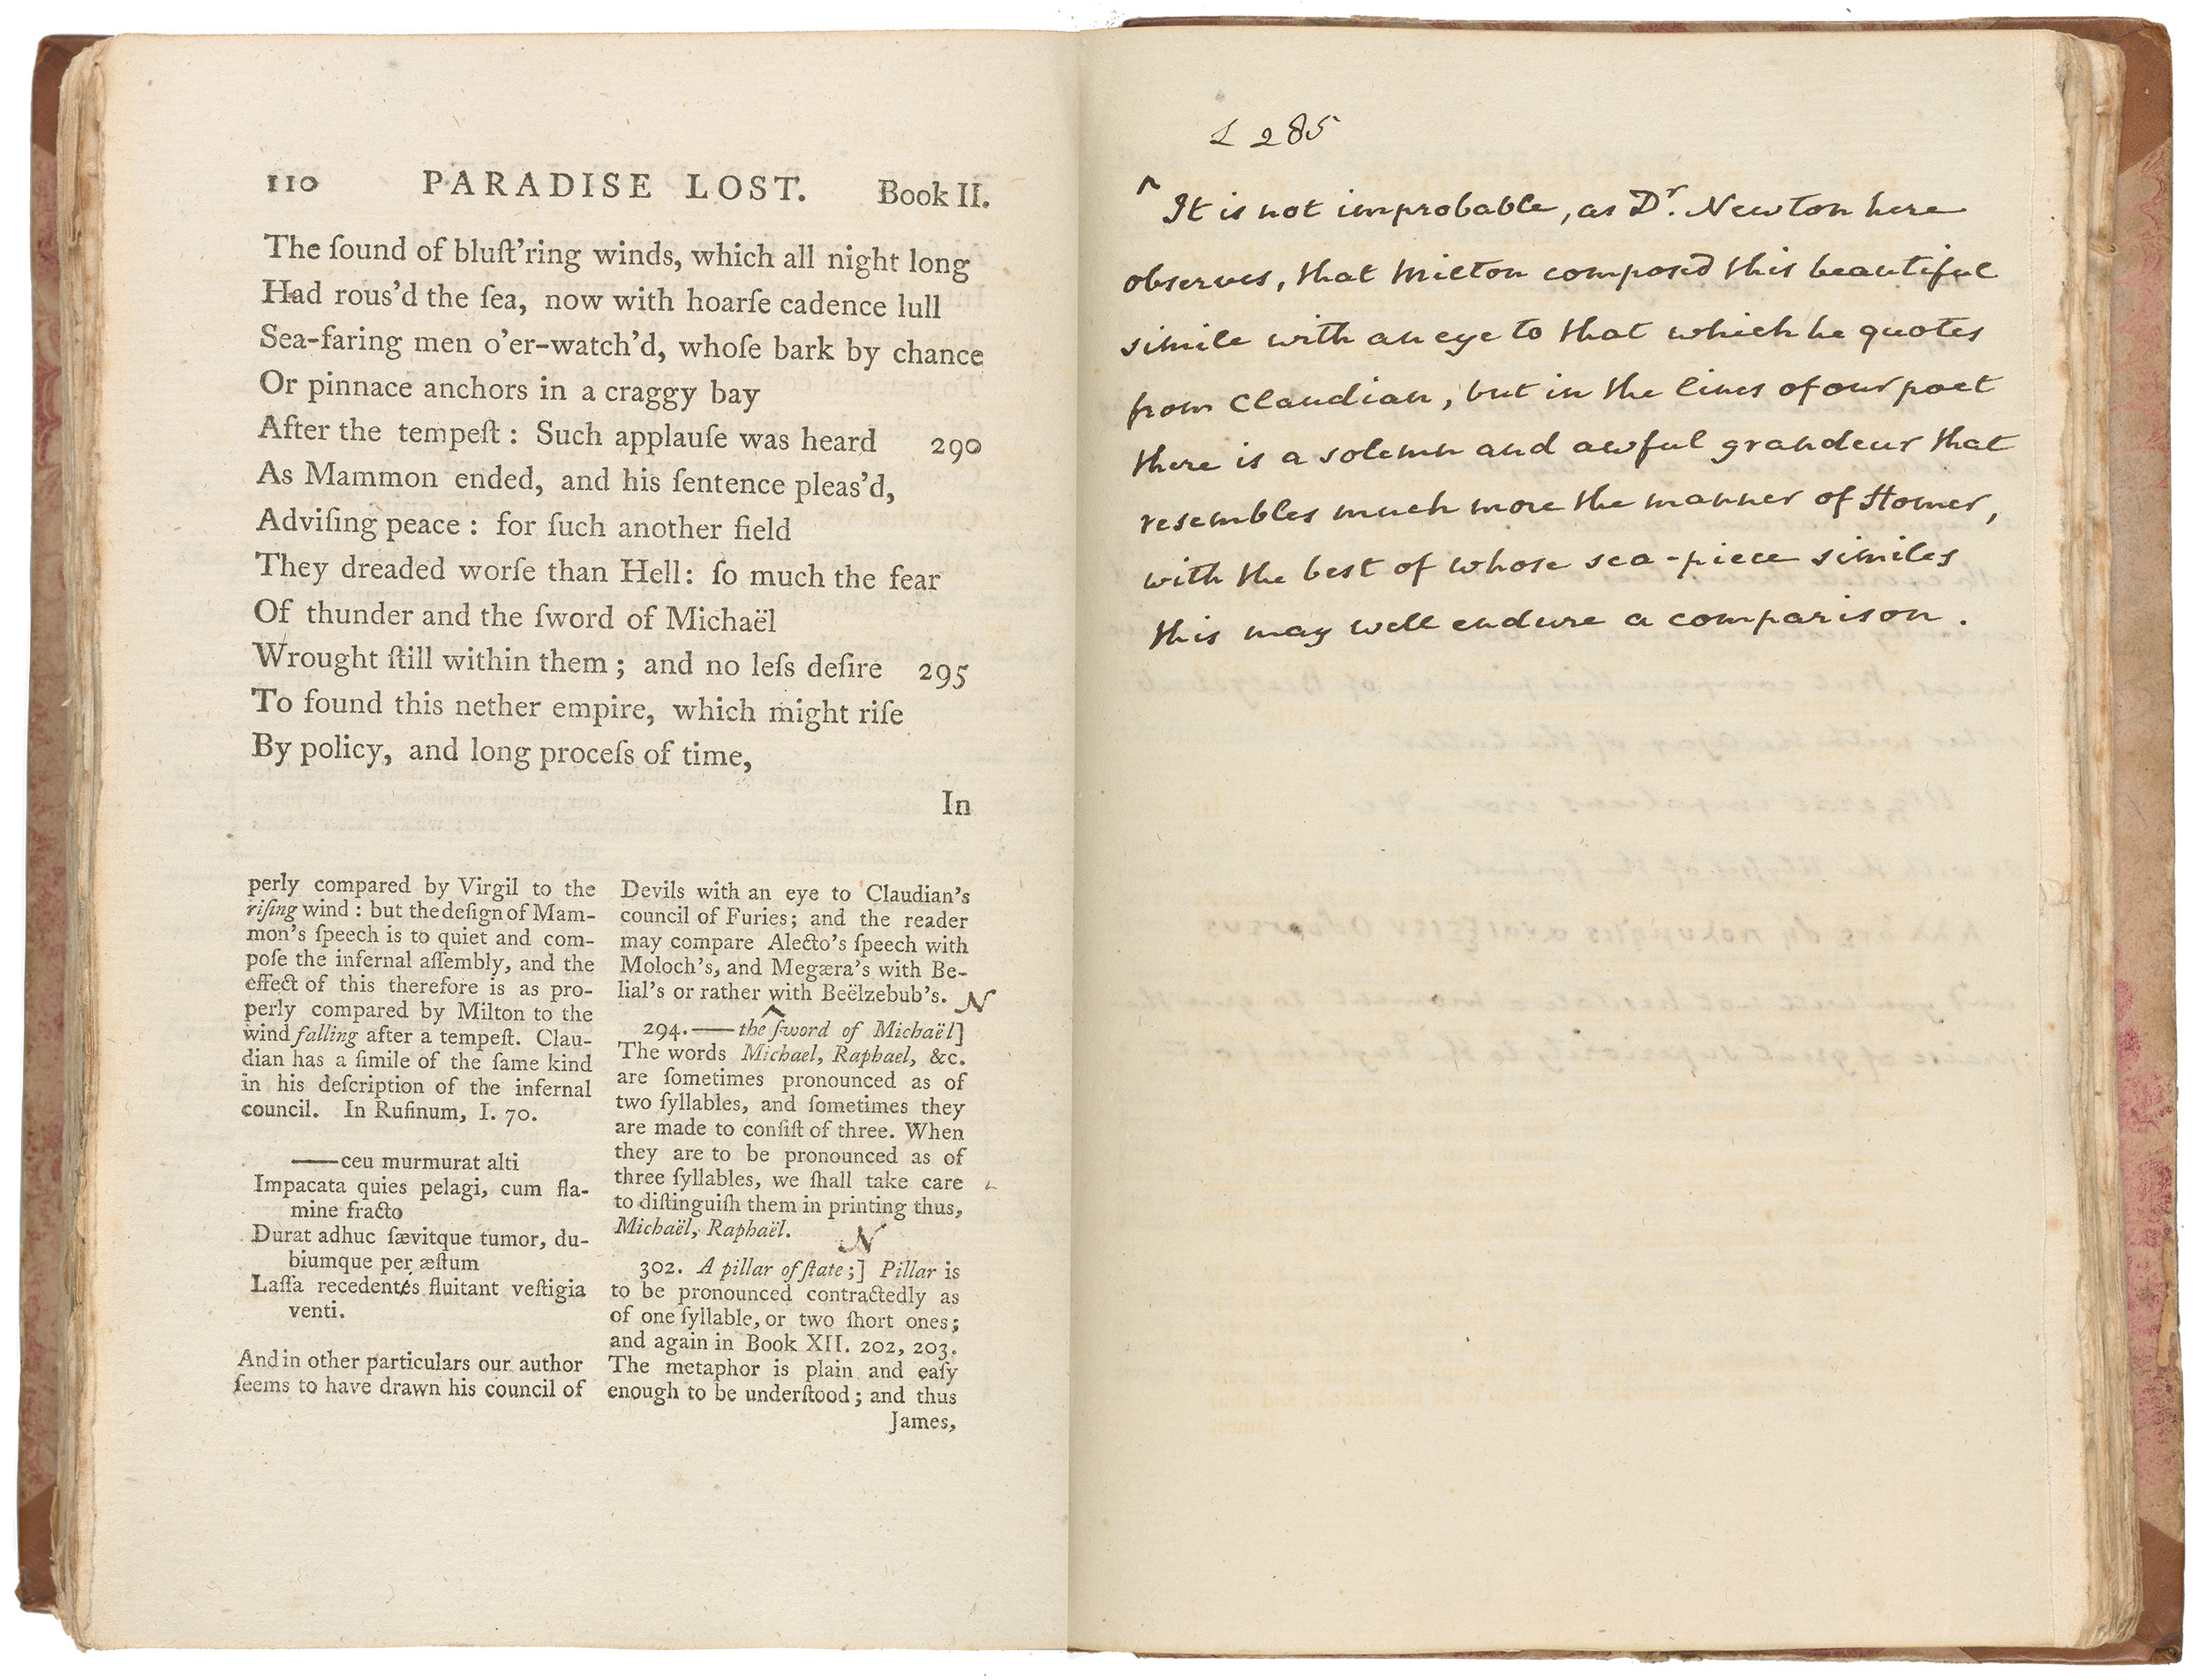 110 PARADISE LOST. Book II.
The ſound of bluſt'ring winds, which all night long
Had rous'd the ſea, now with hoarſe cadence lull
Sea-faring men o'er-watch'd, whoſe bark by chance
Or pinnace anchors in a craggy bay
After the tempeſt : Such applauſe was heard 290
As Mammon ended, and his ſentence pleas'd,
Adviſing peace : for ſuch another field
They dreaded worſe than Hell : ſo much the fear
Of thunder and the ſword of Michaël
Wrought ſtill within them ; and no leſs deſire 295
To found this nether empire, which might riſe
By policy, and long proceſs of time,
In
perly compared by Virgil to the
riſing wind : but the deſign of Mam-
mon's ſpeech is to quiet and com-
poſe the infernal aſſembly, and the
effect of this therefore is as pro-
perly compared by Milton to the
wind falling after a tempeſt. Clau-
dian has a ſimile of the ſame kind
in his deſcription of the infernal
council. In Rufinum, I. 70.
——ceu murmurat alti
Impacata quies pelagi, cum fla-
mine fracto
Durat adhuc ſævitque tumor, du-
biumque per æſtum
Laſſa recedentes fluitant veſtigia
venti.
And in other particulars our author
ſeems to have drawn his council of
Devils with an eye to Claudian's
council of Furies; and the reader
may compare Alecto's ſpeech with
Moloch's, and Megæra's with Be-
lial's or rather with Beëlzebub's. N
^
294.——the ſword of Michaël]
The words Michael, Raphael, &c.
are ſometimes pronounced as of
two ſyllables, and ſometimes they
are made to conſiſt of three. When
they are to be pronounced as of
three ſyllables, we ſhall take care
to diſtinguiſh them in printing thus,
Michaël, Raphaël. N
302. A pillar of ſtate;] Pillar is
to be pronounced contractedly as
of one ſyllable, or two ſhort ones;
and again in Book XII. 202, 203.
The metaphor is plain and eaſy
enough to be underſtood; and thus
James,
L 285
^ It is not improbable, as Dr. Newton here
observes, that Milton composed this beautiful
simile with an eye to that which he quotes
from Claudian, but in the lines of our poet
there is a solemn and awful grandeur that
resembles much more the manner of Homer,
with the best of whose sea-piece similes
this may well endure a comparison.